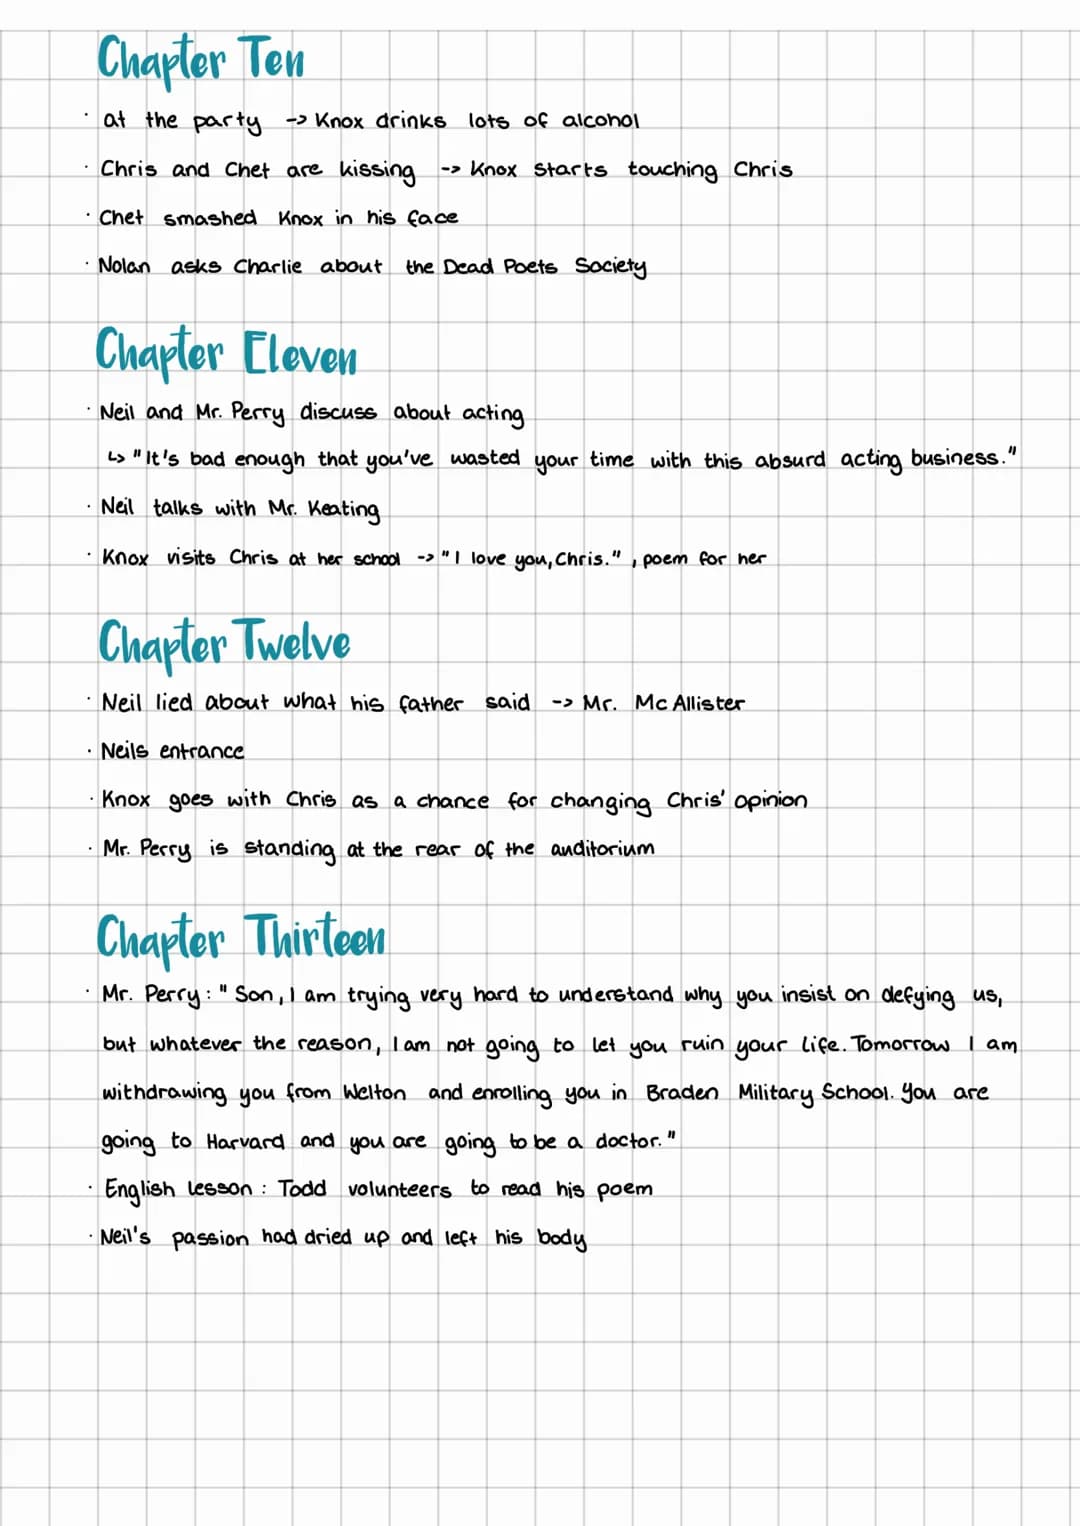 Chapter Ten
· at the party -> Knox drinks lots of alcohol
· Chris and Chet are kissing -> Knox starts touching Chris
· Chet smashed Knox in his face
· Nolan asks Charlie about the Dead Poets Society
Chapter Eleven
· Neil and Mr. Perry discuss about acting
↳ "It's bad enough that you've wasted your time with this absurd acting business."
· Neil talks with Mr. Keating
· Knox visits Chris at her school -> "I love you, Chris." , poem for her
Chapter Twelve
· Neil lied about what his father said -> Mr. Mc Allister
· Neils entrance
· Knox goes with Chris as a chance for changing Chris' opinion
· Mr. Perry is standing at the rear of the auditorium
Chapter Thirteen
· Mr. Perry: "Son, I am trying very hard to understand why you insist on defying us,
but whatever the reason, I am not going to let you ruin your life. Tomorrow I am
withdrawing you from Welton and enrolling you in Braden Military School. You are
going to Harvard and you are going to be a doctor."
· English lesson: Todd volunteers to read his poem
· Neil's passion had dried up and left his body